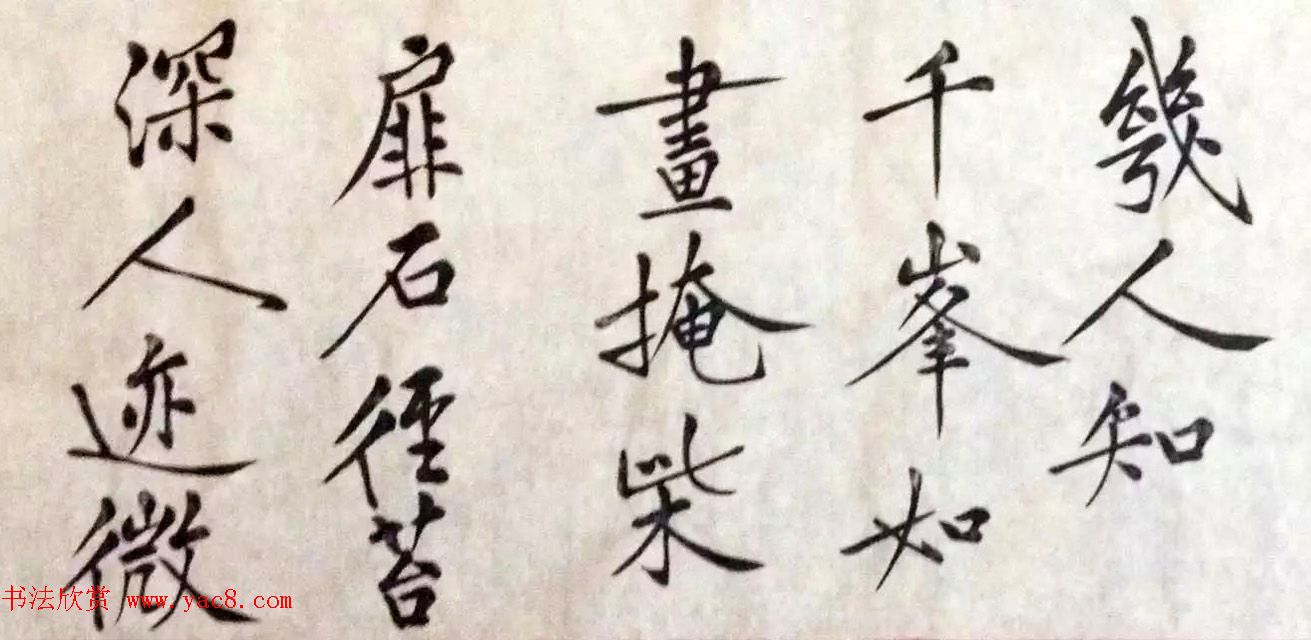 幾人知
千峯如
畫掩柴
扉石徑苔
深人迹微
书法欣赏 www.yac8.com